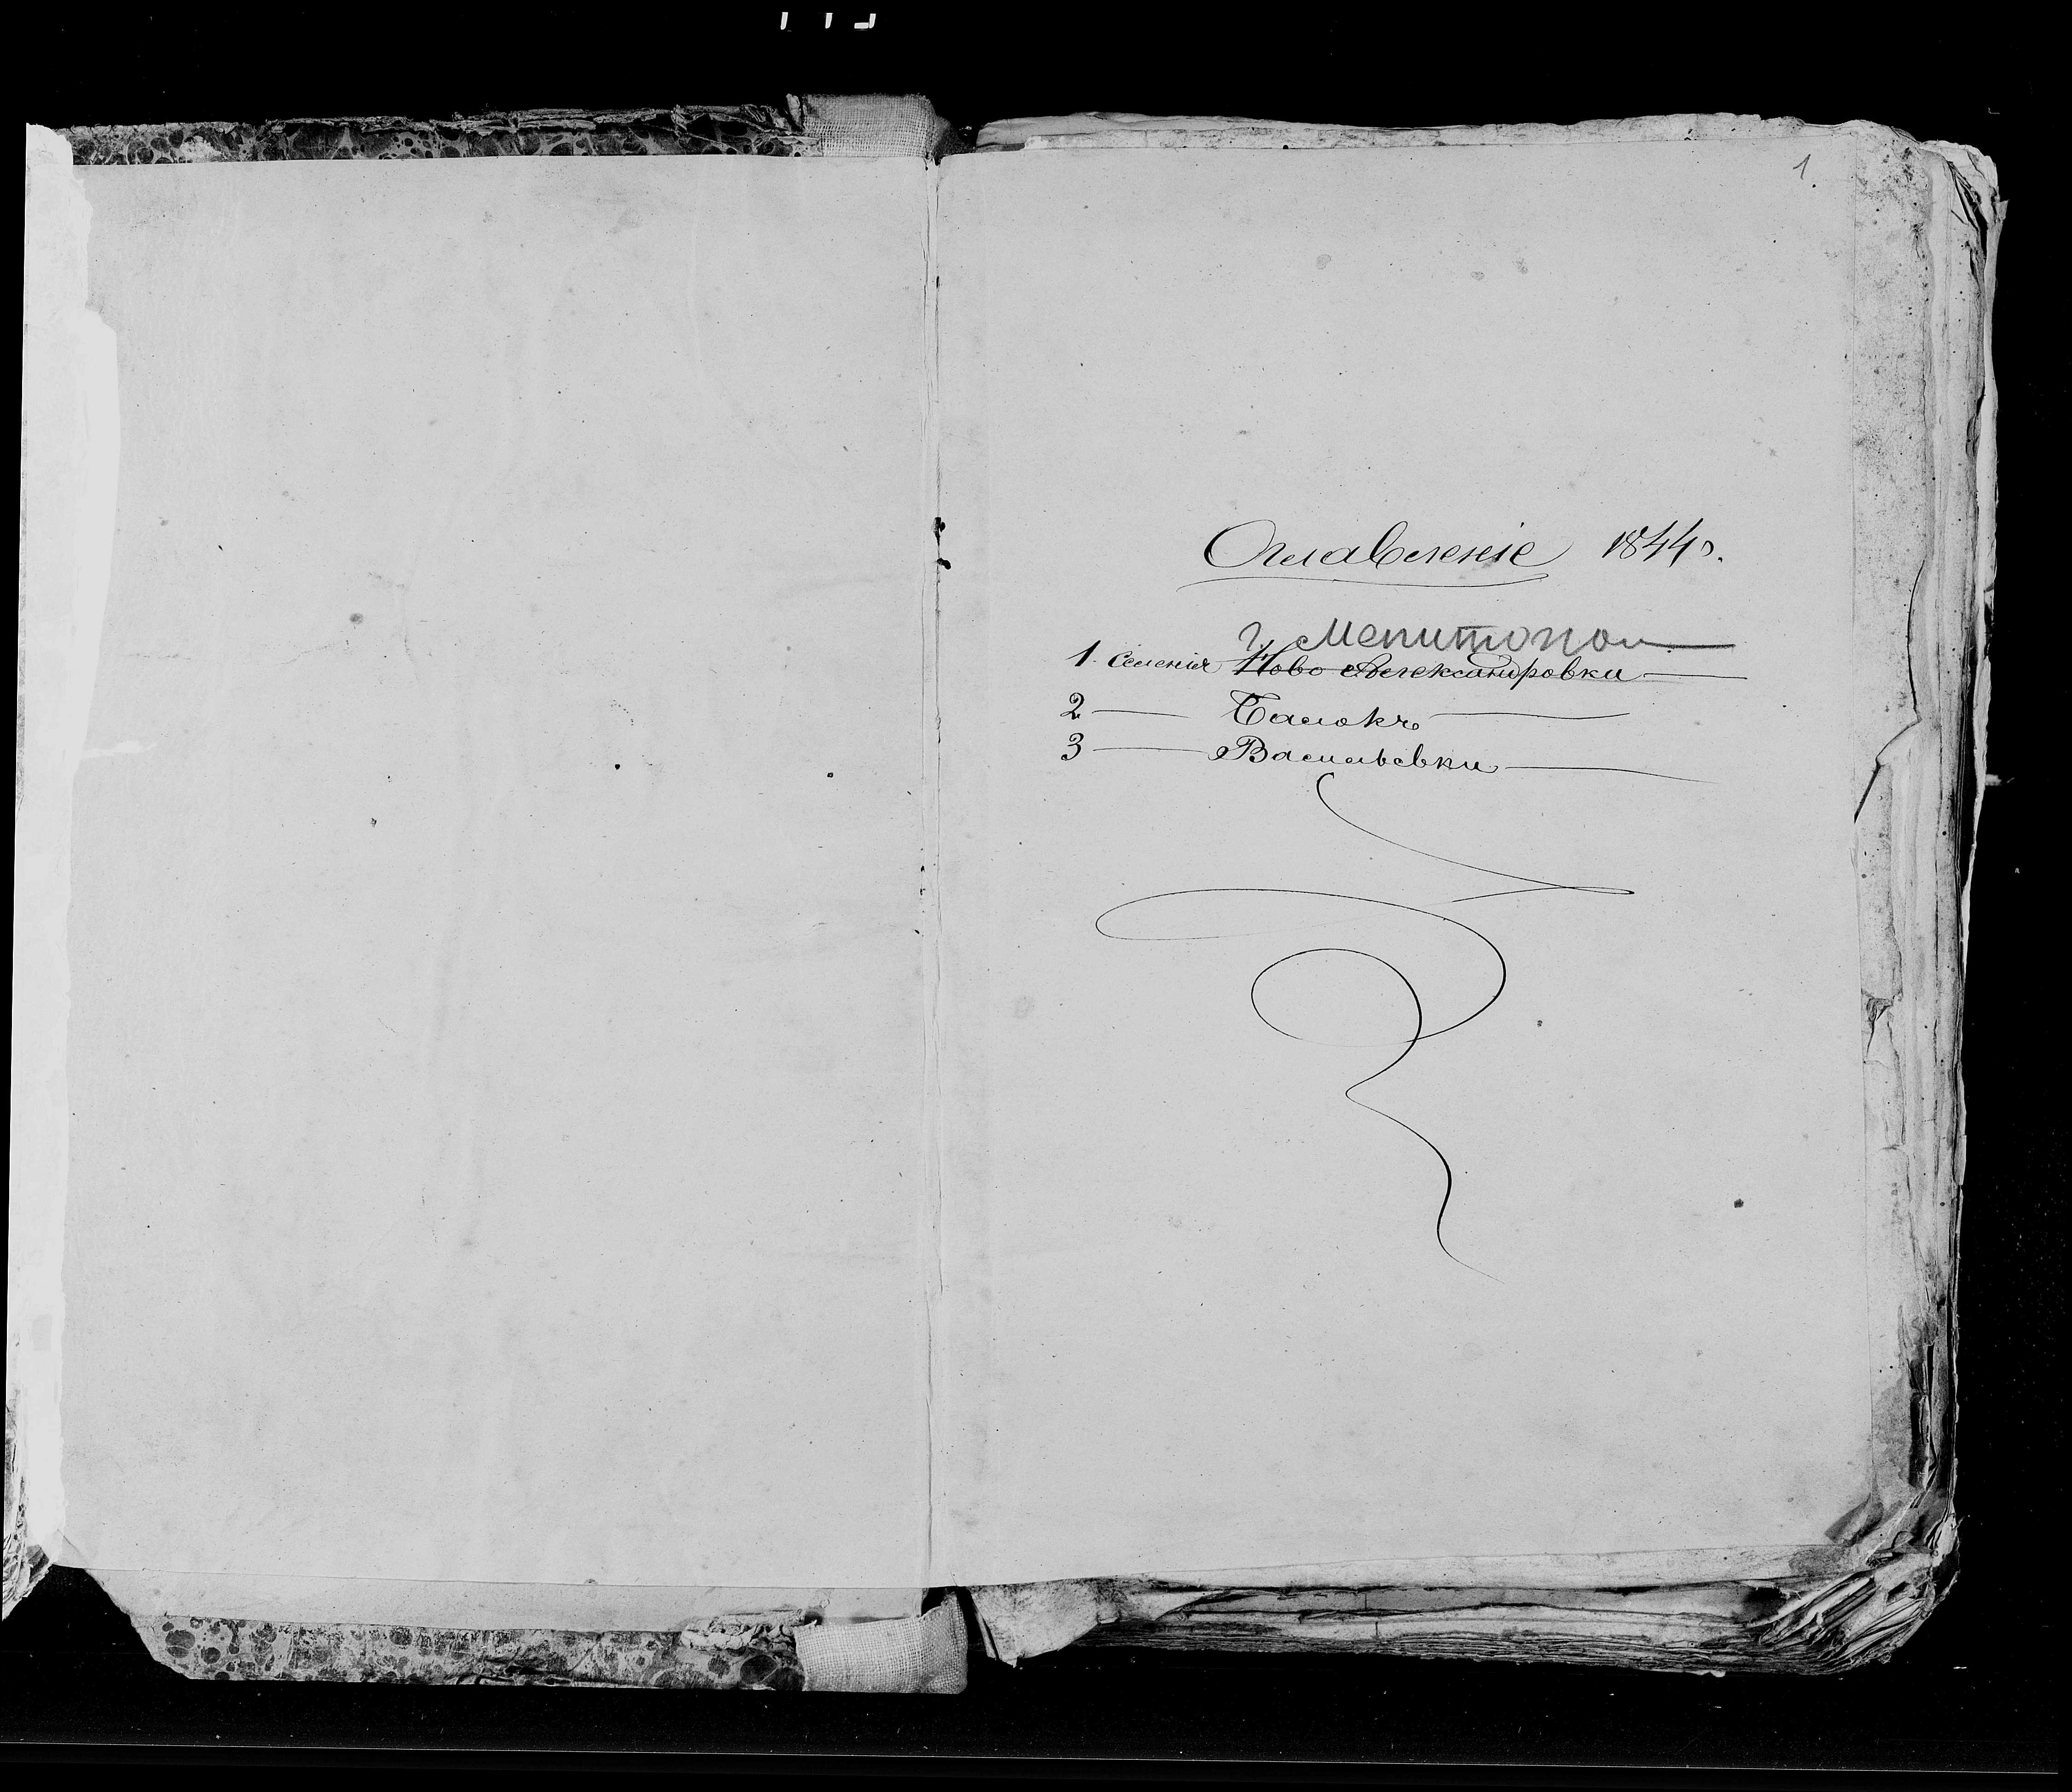 1.
Оглавленіе 1844 г.
г. Мелитополь
1. Селенія Ново Александровки
2 — Балокъ
3 — Васильевки